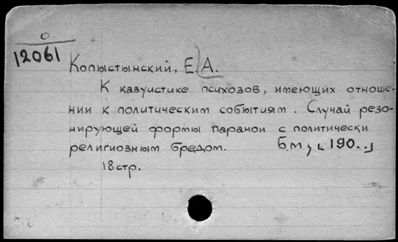 0
12061
Копыстынский, Е. А.
К казуистике психозов, имеющих отноше-
нии к политическим событиям. Случай резо-
нирующей формы паранои с политически
религиозным бредом. б.м., [190..]
18 стр.